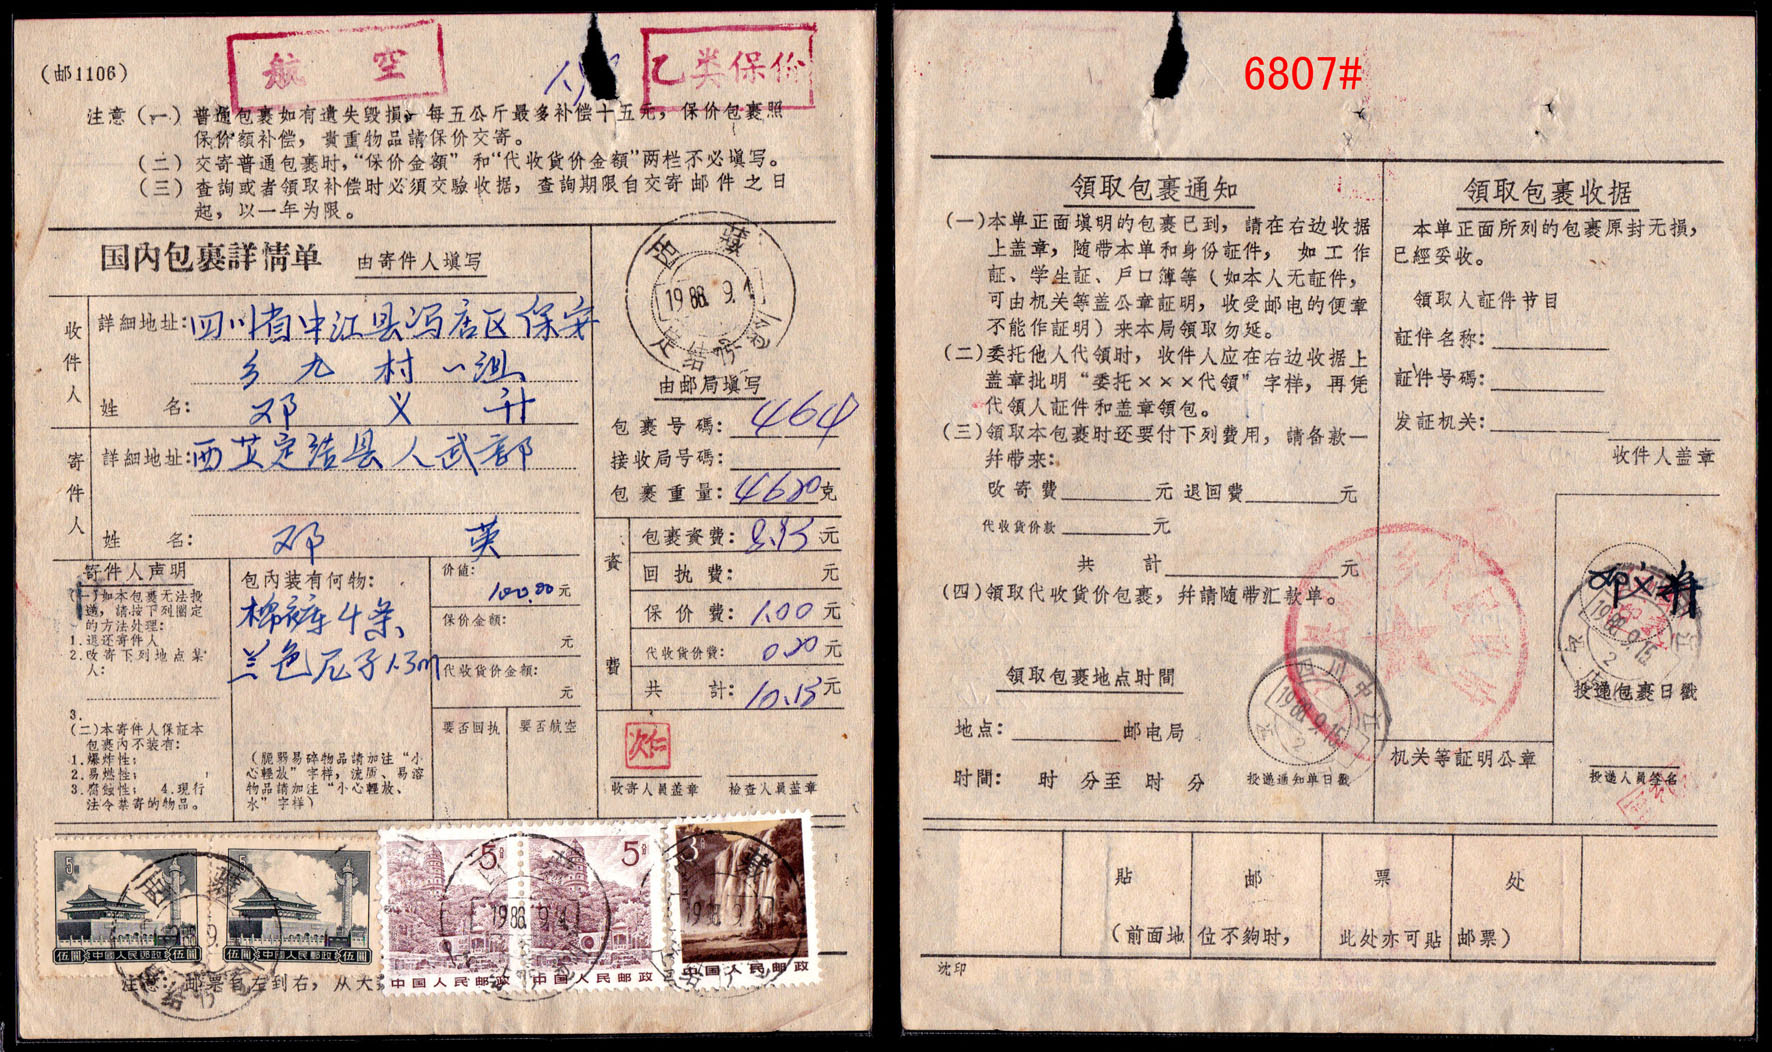 航 空
乙类保价
(邮1106)
注意(一)普通包裹如有遺失毁損,每五公斤最多补偿十五元,保价包裹照
保价額补偿,貴重物品請保价交寄。
(二)交寄普通包裹时,“保价金額”和“代收貨价金額”两栏不必塡写。
(三)查詢或者領取补偿时必須交驗收据,查詢期限自交寄邮件之日
起,以一年为限。
国內包裹詳情单 由寄件人塡写
收件人
詳細地址:四川省中江县冯店区保安
乡九村一组
姓 名:邓义升
寄件人
詳細地址:西芷定结县人武部
姓 名:邓 英
西藏
1988.9.1
定结
由邮局塡写
包裹号碼:464
接收局号碼:
包裹重量:4620克
資費
包裹資費:8.95元
回执費: 元
保价費:1.00元
代收貨价費:0.20元
共 計:10.15元
寄件人声明
(一)如本包裹无法投
递,請按下列圈定
的方法处理:
1.退还寄件人
2.改寄下列地点某
人:
3.
(二)本寄件人保証本
包裹內不装有:
1.爆炸性;
2.易燃性;
3.腐蝕性; 4.現行
法令禁寄的物品。
包內装有何物:
棉裤4条
兰色尼子1.3m
(脆弱易碎物品請加注“小
心輕放”字样,流质、易溶
物品請加注“小心輕放、
水”字样)
价値:
100.00元
保价金額:
元
代收貨价金額:
元
要否回执 要否航空
次仁
收寄人員盖章 檢查人員盖章
5
伍圓 中國人民郵政 伍圓
5
伍圓 中國人民郵政 伍圓
5分
中国人民邮政
5分
中国人民邮政
3
中国人民邮政
西藏
1988.9.1
注意:邮票自左到右,从大
6807#
領取包裹通知
(一)本单正面塡明的包裹已到,請在右边收据
上盖章,随带本单和身份証件, 如工作
証、学生証、戶口簿等(如本人无証件,
可由机关等盖公章証明,收受邮电的便章
不能作証明)来本局領取勿延。
(二)委托他人代領时,收件人应在右边收据上
盖章批明“委托×××代領”字样,再凭
代領人証件和盖章領包。
(三)領取本包裹时还要付下列費用,請备款一
幷带来:
改寄費 元 退回費 元
代收貨价款 元
共 計 元
(四)領取代收貨价包裹,幷請随带汇款单。
領取包裹地点时間
地点: 邮电局
时間: 时 分至 时 分
四川中江
1988.9.15
2
投递通知单日戳
領取包裹收据
本单正面所列的包裹原封无損,
已經妥收。
領取人証件节目
証件名称:
証件号碼:
发証机关:
收件人盖章
邓义升
1988.9.15
2
投递包裹日戳
机关等証明公章
投递人員签名
貼 邮 票 处
(前面地位不夠时, 此处亦可貼邮票)
沈印